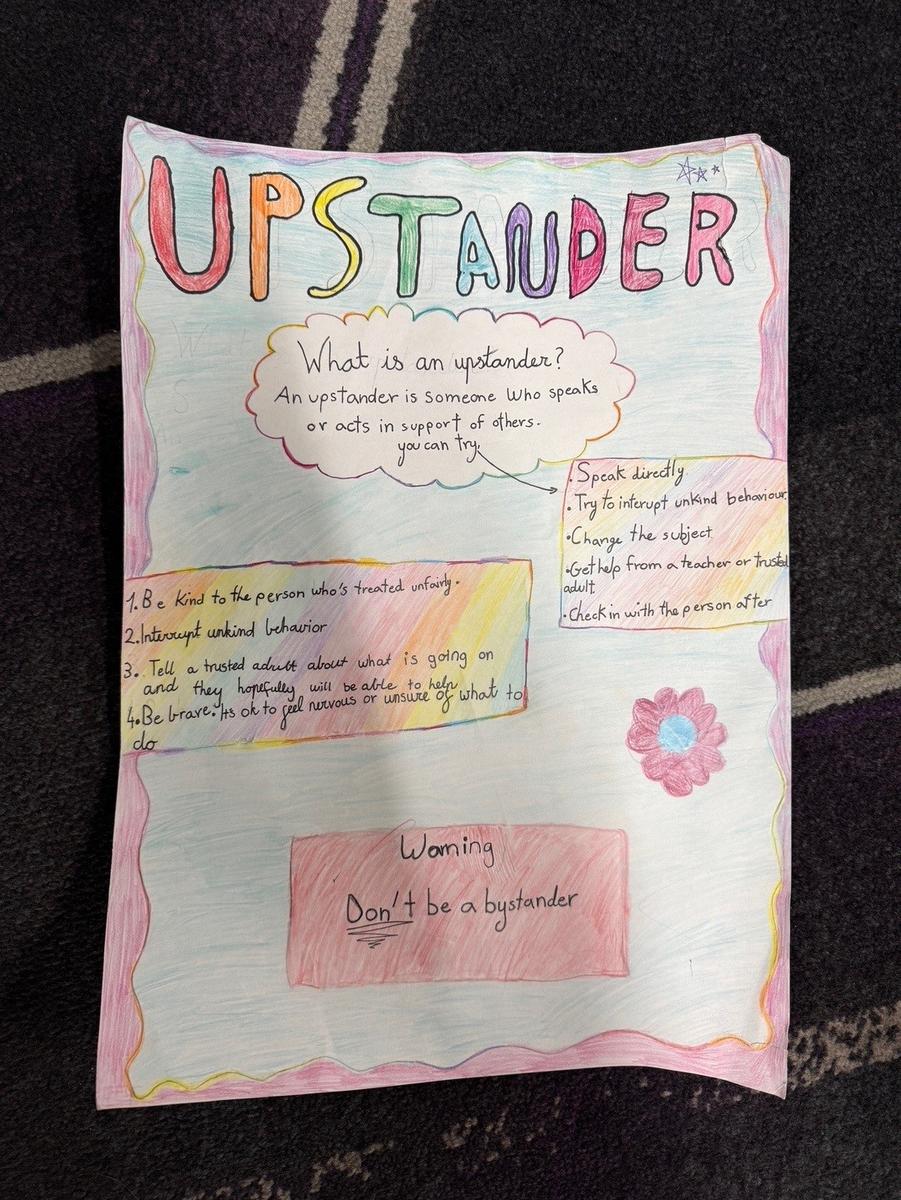 UPSTANDER
What is an upstander?
An upstander is someone who speaks
or acts in support of others.
you can try
• Speak directly
• Try to interupt unkind behaviour
• Change the subject
• Get help from a teacher or trusted
adult
• Check in with the person after
1. Be kind to the person who's treated unfairly.
2. Interrupt unkind behavior
3. Tell a trusted adult about what is going on
and they hopefully will be able to help
4. Be brave. Its ok to feel nervous or unsure of what to
do
Warning
Don't be a bystander